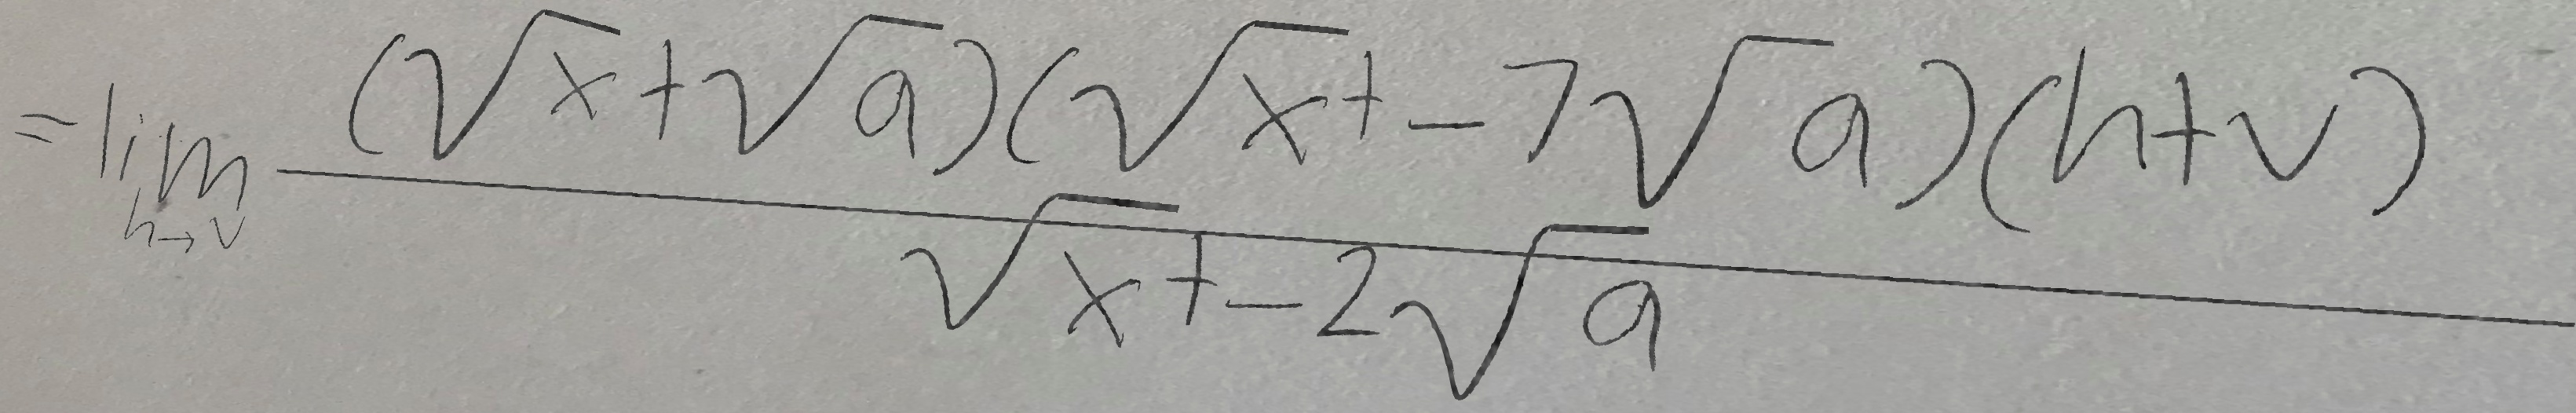 = \lim_{h \to v} \frac{(\sqrt{x} + \sqrt{a})(\sqrt{x} + -7\sqrt{a})(h+v)}{\sqrt{x} + -2\sqrt{a}}